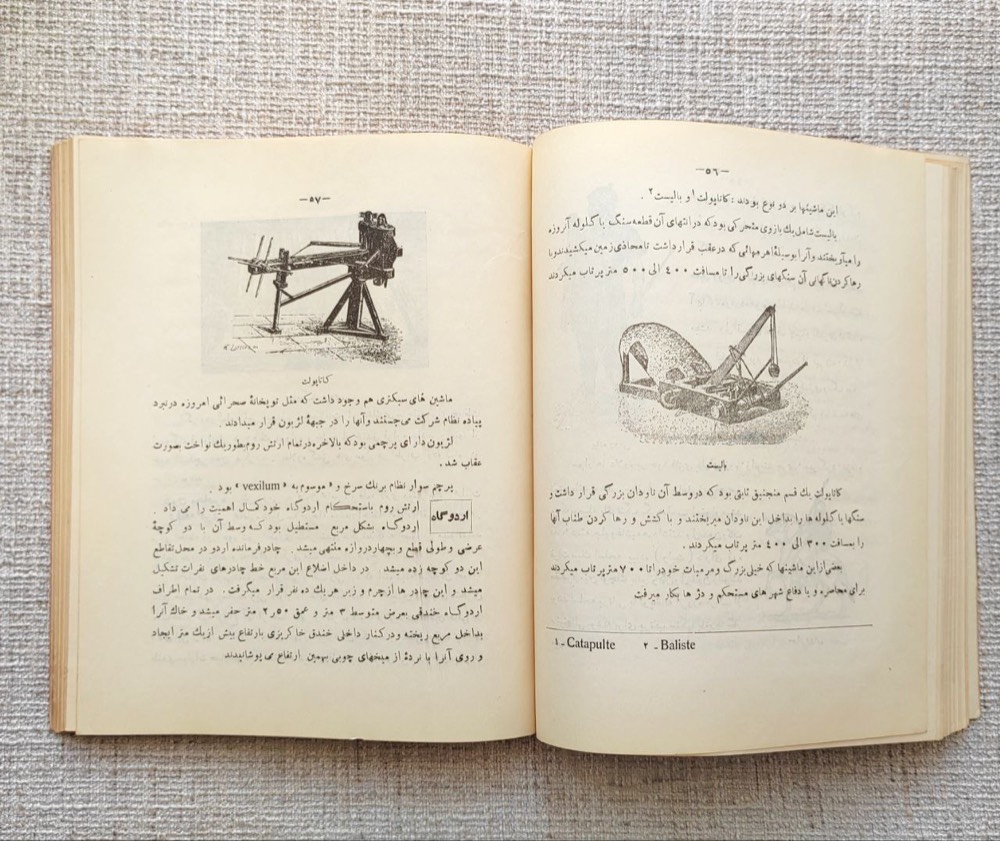 -۵۶-
این ماشینها بر دو نوع بودند : کاتاپولت۱ و بالیست۲ .
بالیست شامل یك بازوی متحرکی بود که در انتهای آن قطعه سنگ یا گلوله آنروزه
را میآویختند و آنرا بوسیلهٔ اهرمهائی که در عقب قرار داشت تا محاذی زمین میکشیدند و با
رها کردن ناگهانی آن سنگهای بزرگی را تا مسافت ۴۰۰ الی ۵۰۰ متر پرتاب میکردند
بالیست
کاتاپولت یك قسم منجنیق ثابتی بود که در وسط آن ناودان بزرگی قرار داشت و
سنگها یا گلوله ها را بداخل این ناودان میریختند و با کشش و رها کردن طناب آنها
را بمسافت ۳۰۰ الی ۴۰۰ متر پرتاب میکردند .
بعضی از این ماشینها که خیلی بزرگ و مرمیات خود را تا ۷۰۰ متر پرتاب میکردند
برای محاصره و یا دفاع شهر های مستحکم و دژ ها بکار میرفت
۱ - Catapulte ۲ - Baliste
-۵۷-
کاتاپولت
ماشین های سبکتری هم وجود داشت که مثل توپخانهٔ صحرائی امروزه در نبرد
پیاده نظام شرکت می‌جستند و آنها را در جبههٔ لژیون قرار میدادند .
لژیون دارای پرچمی بود که بالاخره در تمام ارتش روم بطور یك نواخت بصورت
عقاب شد .
پرچم سوار نظام برنك سرخ و موسوم به « vexilum » بود .
اردوگاه
ارتش روم باستحکام اردوگاه خود کمال اهمیت را می داد .
اردوگاه بشکل مربع مستطیل بود که وسط آن با دو کوچهٔ
عرضی و طولی قطع و بچهار دروازه منتهی میشد . چادر فرمانده اردو در محل تقاطع
این دو کوچه زده میشد . در داخل اضلاع این مربع خط چادرهای نفرات تشکیل
میشد و این چادر ها از چرم و زیر هر یك ده نفر قرار میگرفت . در تمام اطراف
اردوگاه خندقی بعرض متوسط ۳ متر و عمق ۲٫۵۰ متر حفر میشد و خاك آنرا
بداخل مربع ریخته و در کنار داخلی خندق خاکریزی بارتفاع بیش از یك متر ایجاد
و روی آنرا با نردهٔ از میخهای چوبی بهمین ارتفاع می پوشانیدند